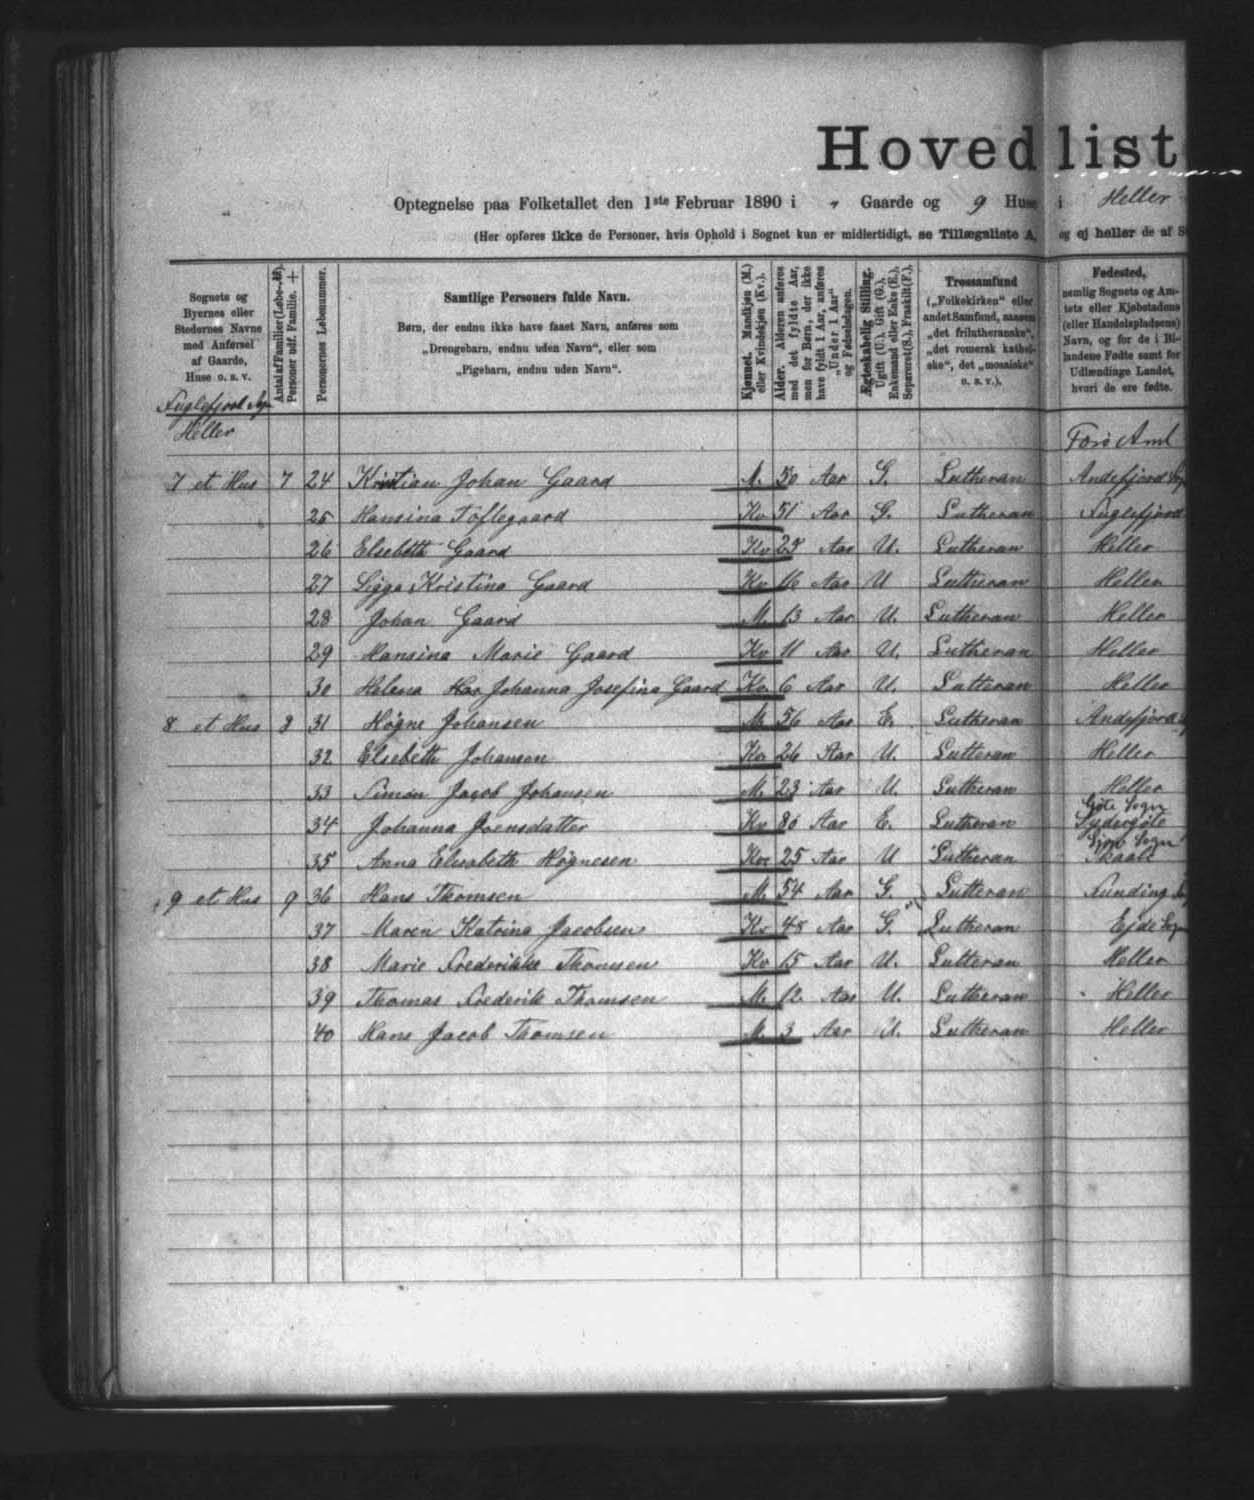 Hovedlist
Optegnelse paa Folketallet den 1ste Februar 1890 i " Gaarde og 9 Huse i Heller
(Her opføres ikke de Personer, hvis Ophold i Sognet kun er midlertidigt, se Tillægsliste A, og ej heller de af S
Sognets og Byernes eller Stedernes Navne med Anførsel af Gaarde, Huse o. s. v.
Antal af Familier (Løbe-№). Personer udf. Familie. +
Personernes Løbenummer.
Samtlige Personers fulde Navn.
Børn, der endnu ikke have faaet Navn, anføres som
„Drengebarn, endnu uden Navn“, eller som
„Pigebarn, endnu uden Navn“.
Kjønnet. Mandkjøn (M.) eller Kvindekjøn (Kv.).
Alder. Alderen anføres med det fyldte Aar, men for Børn, der ikke have fyldt 1 Aar, anføres „Under 1 Aar“ og Fødselsdagen.
Ægteskabelig Stilling. Ugift (U.), Gift (G.), Enkemand eller Enke (E.), Separeret (S.), Fraskilt (F.).
Trossamfund („Folkekirken“ eller andet Samfund, saasom „det frilutheranske“, „det romersk katholske“, det „mosaiske“ o. s. v.).
Fødested, nemlig Sognets og Amtets eller Kjøbstadens (eller Handelspladsens) Navn, og for de i Bilandene Fødte samt for Udlændinge Landet, hvori de ere fødte.
Fuglefjord Sogn
Heller
Færø Amt
7 et Hus 7 24 Kristian Johan Gaard M. 50 Aar G. Lutheran Andefjord Sogn
25 Hansina Toftegaard Kv 51 Aar G. Lutheran Fuglefjord
26 Elsebeth Gaard Kv 25 Aar U. Lutheran Heller
27 Sigga Kristina Gaard Kv 16 Aar U Lutheran Heller
28 Johan Gaard M. 13 Aar U. Lutheran Heller
29 Hansina Marie Gaard Kv 11 Aar U. Lutheran Heller
30 Helena Johanna Josefina Gaard Kv 6 Aar U. Lutheran Heller
8 et Hus 8 31 Høgne Johansen M. 56 Aar E. Lutheran Andefjord
32 Elsebeth Johansen Kv 26 Aar U. Lutheran Heller
33 Simon Jacob Johansen M. 23 Aar U. Lutheran Heller
34 Johanna Joensdatter Kv 80 Aar E. Lutheran Gøte Sogn Sydregøte
35 Anna Elisabeth Høgnesen Kv 25 Aar U Lutheran Sogn Skaale
9 et Hus 9 36 Hans Thomsen M. 54 Aar G. Lutheran Funding
37 Maren Katrina Jacobsen Kv 45 Aar G. Lutheran Ejde Sogn
38 Marie Frederikke Thomsen Kv 15 Aar U. Lutheran Heller
39 Thomas Frederik Thomsen M. 12 Aar U. Lutheran Heller
40 Hans Jacob Thomsen M. 3 Aar U. Lutheran Heller